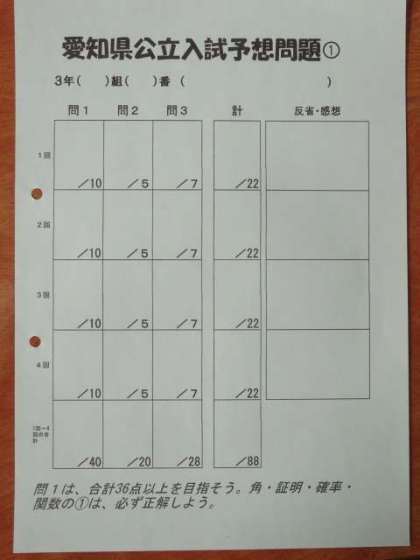 愛知県公立入試予想問題①
3年( )組( )番 ( )
問1 問2 問3 計 反省・感想
1回 /10 /5 /7 /22
2回 /10 /5 /7 /22
3回 /10 /5 /7 /22
4回 /10 /5 /7 /22
/40 /20 /28 /88
問1は、合計36点以上を目指そう。角・証明・確率・
関数の①は、必ず正解しよう。